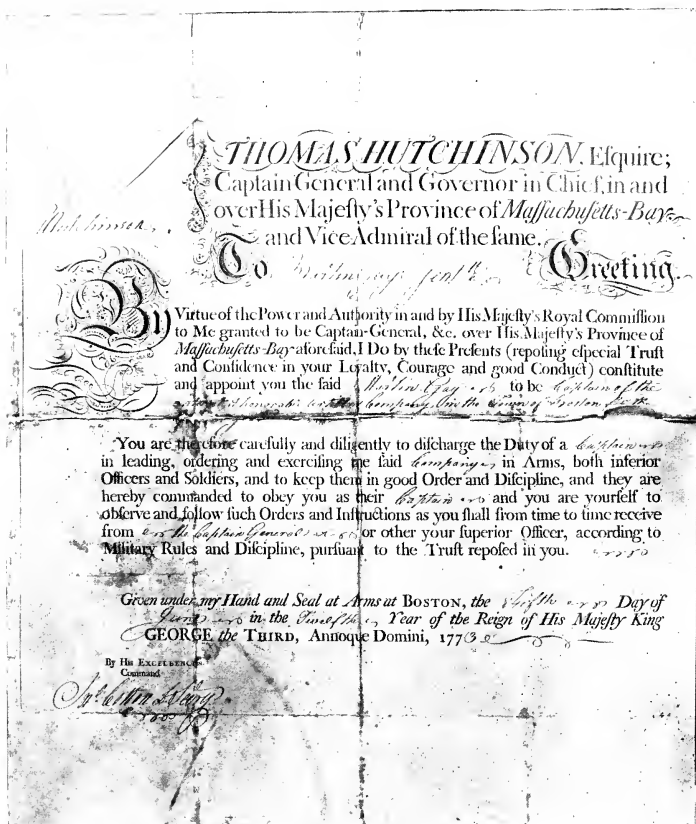 THOMAS HUTCHINSON, Eſquire;
Captain General and Governor in Chief, in and
over His Majeſty's Province of Maſſachuſetts-Bay
Hutchinson.
and Vice Admiral of the ſame.
To Martin Gay Gentn. Greeting.
By Virtue of the Power and Authority in and by His Majeſty's Royal Commiſſion
to Me granted to be Captain-General, &c. over His Majeſty's Province of
Maſſachuſetts-Bay aforeſaid, I Do by theſe Preſents (repoſing eſpecial Truſt
and Confidence in your Loyalty, Courage and good Conduct) conſtitute
and appoint you the ſaid Martin Gay to be Captain of the
Company in the Town of Boston
You are therefore carefully and diligently to diſcharge the Duty of a Captain
in leading, ordering and exerciſing the ſaid Company in Arms, both inferior
Officers and Soldiers, and to keep them in good Order and Diſcipline, and they are
hereby commanded to obey you as their Captain and you are yourſelf to
obſerve and follow ſuch Orders and Inſtructions as you ſhall from time to time receive
from the Captain General or other your ſuperior Officer, according to
Military Rules and Diſcipline, purſuant to the Truſt repoſed in you.
Given under my Hand and Seal at Arms at BOSTON, the fifth Day of
June in the Twelfth Year of the Reign of His Majeſty King
GEORGE the THIRD, Annoque Domini, 177
By His EXCELLENCY'S
Command